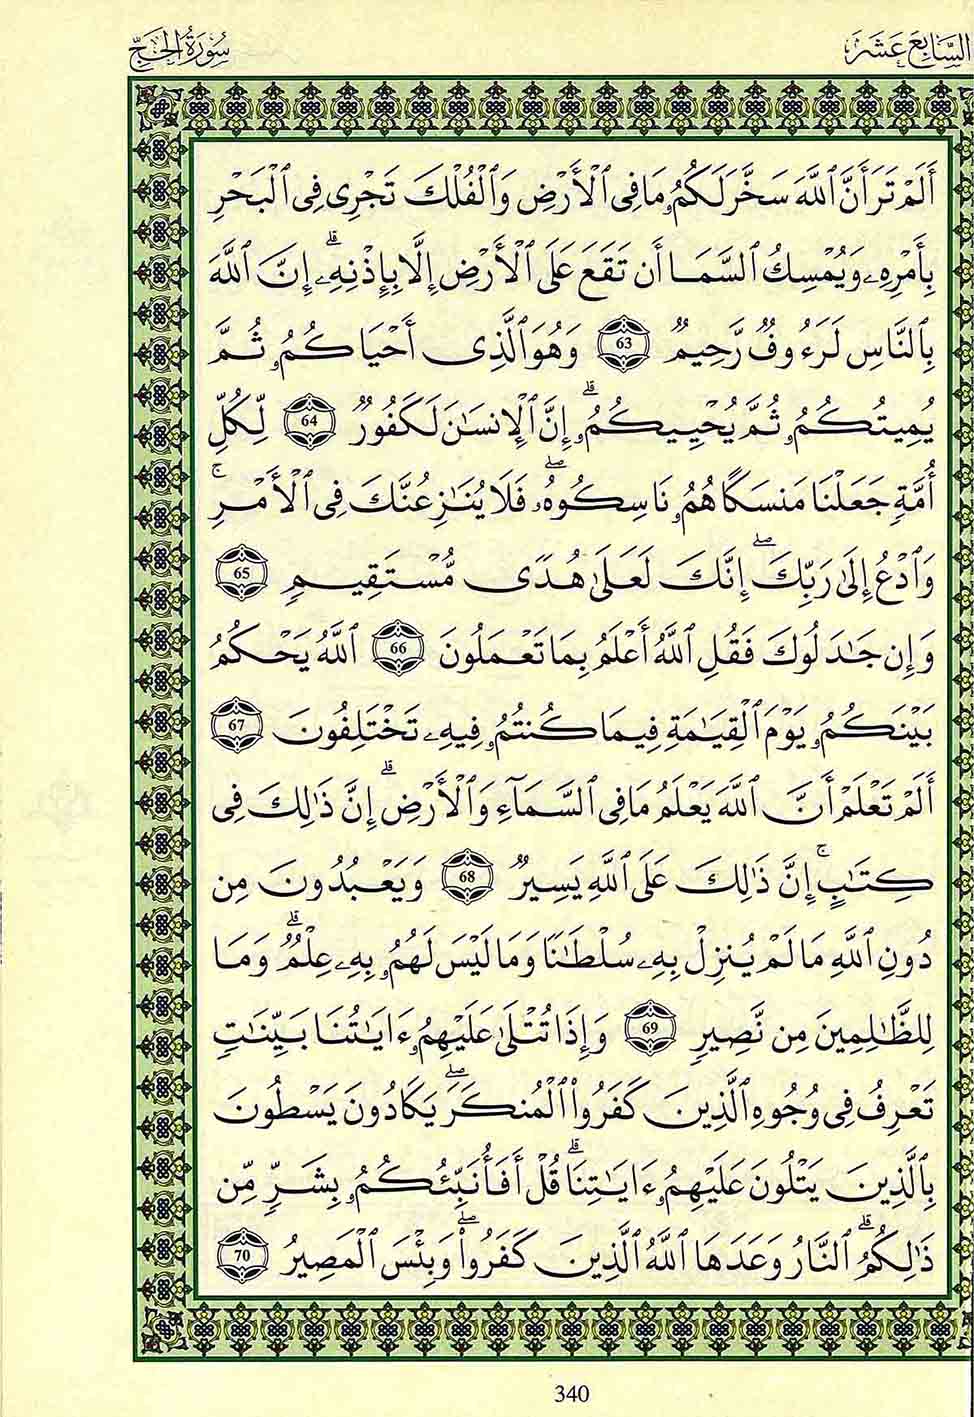 السَّابِعَ عَشَرَ
سُورَةُ الحَجِّ
أَلَمْ تَرَ أَنَّ ٱللَّهَ سَخَّرَ لَكُمُۥ مَا فِى ٱلْأَرْضِ وَٱلْفُلْكَ تَجْرِى فِى ٱلْبَحْرِ
بِأَمْرِهِۦ وَيُمْسِكُ ٱلسَّمَا أَن تَقَعَ عَلَى ٱلْأَرْضِ إِلَّا بِإِذْنِهِۦٓ ۗ إِنَّ ٱللَّهَ
بِٱلنَّاسِ لَرَءُوفٌ رَّحِيمٌ 63 وَهُوَ ٱلَّذِى أَحْيَاكُمُۥ ثُمَّ
يُمِيتُكُمُۥ ثُمَّ يُحْيِيكُمُۥ ۗ إِنَّ ٱلْإِنسَٰنَ لَكَفُورٌ 64 لِّكُلِّ
أُمَّةٍ جَعَلْنَا مَنسَكًا هُمُۥ نَاسِكُوهُۥ ۖ فَلَا يُنَٰزِعُنَّكَ فِى ٱلْأَمْرِ ۚ
وَٱدْعُ إِلَىٰ رَبِّكَ ۖ إِنَّكَ لَعَلَىٰ هُدًى مُّسْتَقِيمٍ 65
وَإِن جَٰدَلُوكَ فَقُلِ ٱللَّهُ أَعْلَمُ بِمَا تَعْمَلُونَ 66 ٱللَّهُ يَحْكُمُ
بَيْنَكُمُۥ يَوْمَ ٱلْقِيَٰمَةِ فِيمَا كُنتُمُۥ فِيهِۦ تَخْتَلِفُونَ 67
أَلَمْ تَعْلَمْ أَنَّ ٱللَّهَ يَعْلَمُ مَا فِى ٱلسَّمَآءِ وَٱلْأَرْضِ ۗ إِنَّ ذَٰلِكَ فِى
كِتَٰبٍ ۚ إِنَّ ذَٰلِكَ عَلَى ٱللَّهِ يَسِيرٌ 68 وَيَعْبُدُونَ مِن
دُونِ ٱللَّهِ مَا لَمْ يُنزِلْ بِهِۦ سُلْطَٰنًا وَمَا لَيْسَ لَهُمُۥ بِهِۦ عِلْمٌ ۗ وَمَا
لِلظَّٰلِمِينَ مِن نَّصِيرٍ 69 وَإِذَا تُتْلَىٰ عَلَيْهِمُۥٓ ءَايَٰتُنَا بَيِّنَٰتٍ
تَعْرِفُ فِى وُجُوهِ ٱلَّذِينَ كَفَرُوا۟ ٱلْمُنكَرَ ۖ يَكَادُونَ يَسْطُونَ
بِٱلَّذِينَ يَتْلُونَ عَلَيْهِمُۥٓ ءَايَٰتِنَا ۗ قُلْ أَفَأُنَبِّئُكُمُۥ بِشَرٍّ مِّن
ذَٰلِكُمُ ۗ ٱلنَّارُ وَعَدَهَا ٱللَّهُ ٱلَّذِينَ كَفَرُوا۟ ۖ وَبِئْسَ ٱلْمَصِيرُ 70
340